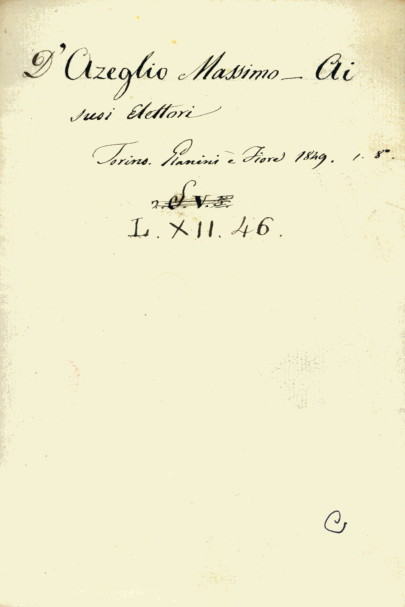 D'Azeglio Massimo _ Ai
suoi Elettori
Torino. Pianini e Fiore 1849. 1. 8°.
L. XII. 46.
C